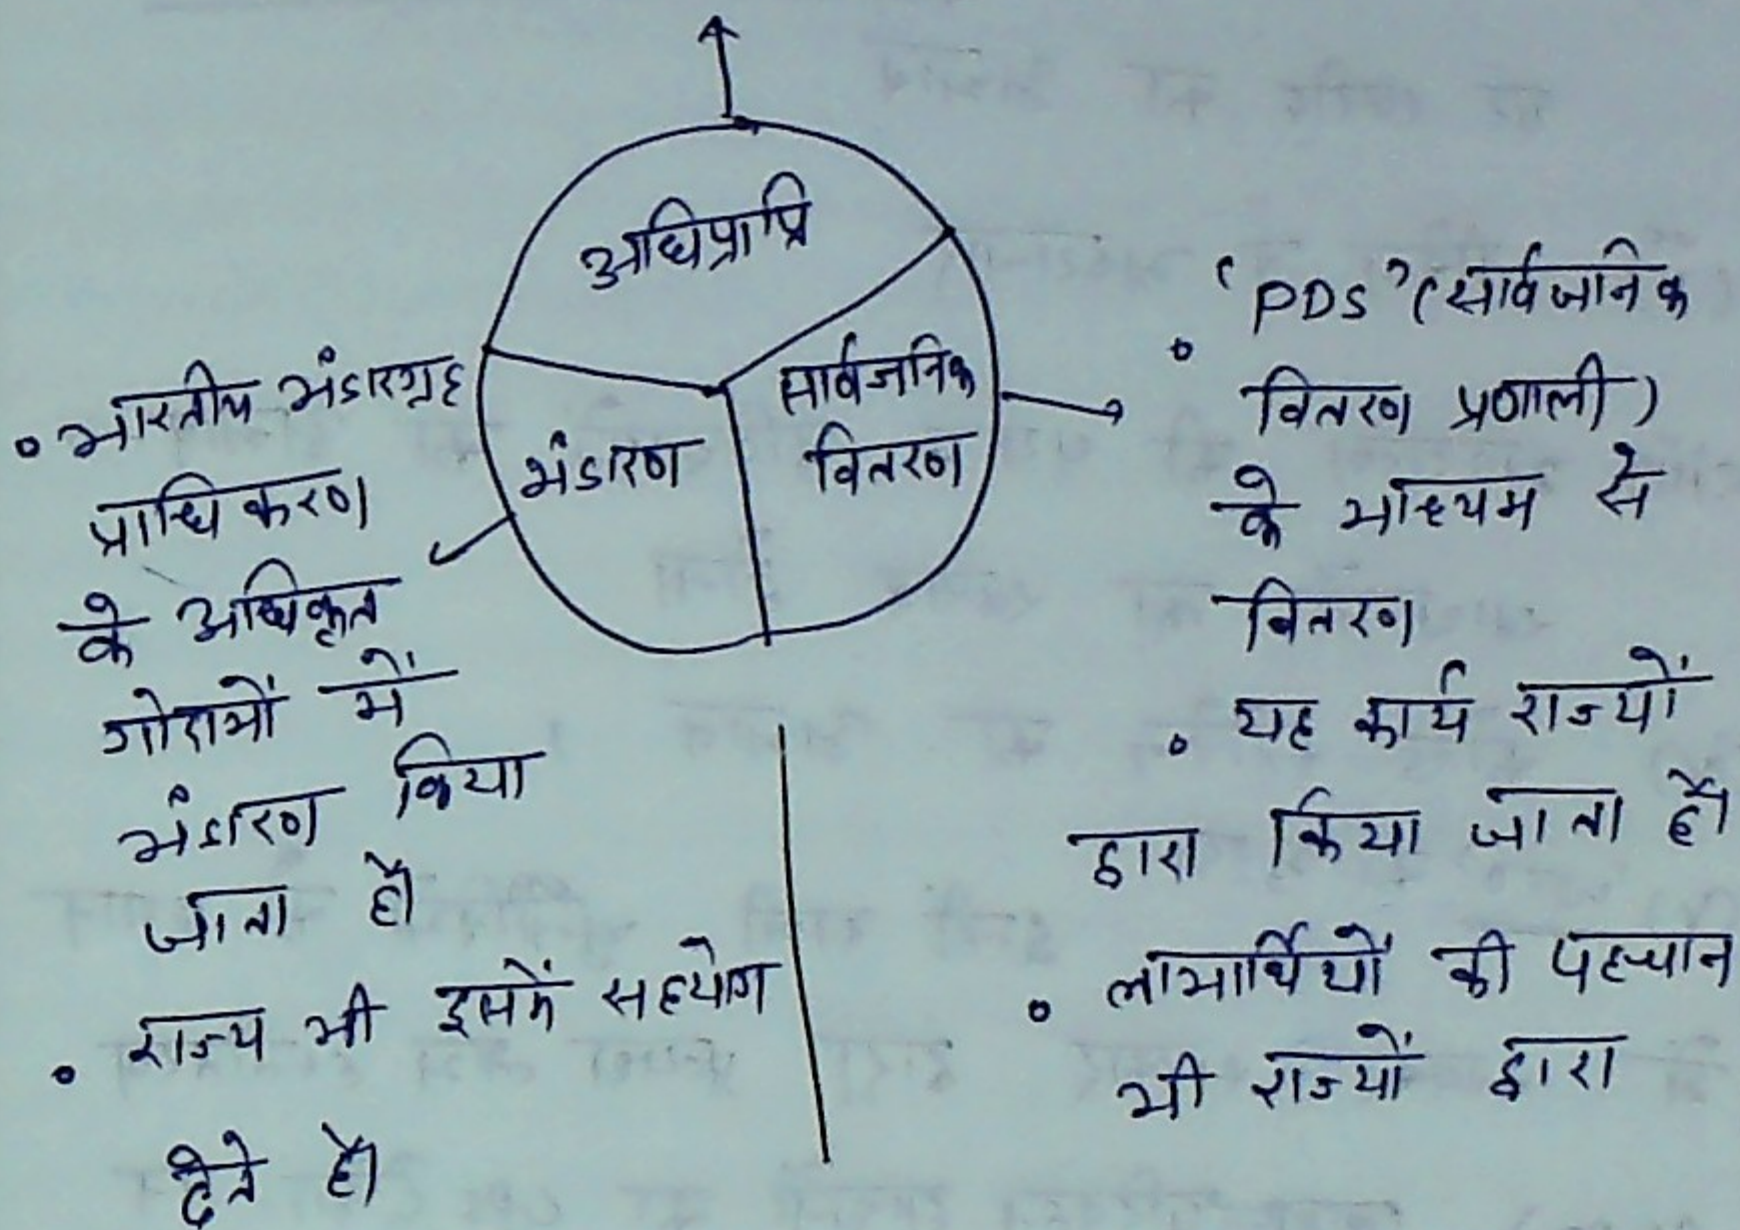 अधिप्राप्ति
सार्वजनिक
वितरण
भंडारण
• भारतीय भंडारगृह
प्राधिकरण
के अधिकृत
गोदामों में
भंडारण किया
जाता है।
• राज्य भी इसमें सहयोग
देते है।
• 'PDS' (सार्वजनिक
वितरण प्रणाली)
के माध्यम से
वितरण
• यह कार्य राज्यों
द्वारा किया जाता है।
• लाभार्थियों की पहचान
भी राज्यों द्वारा